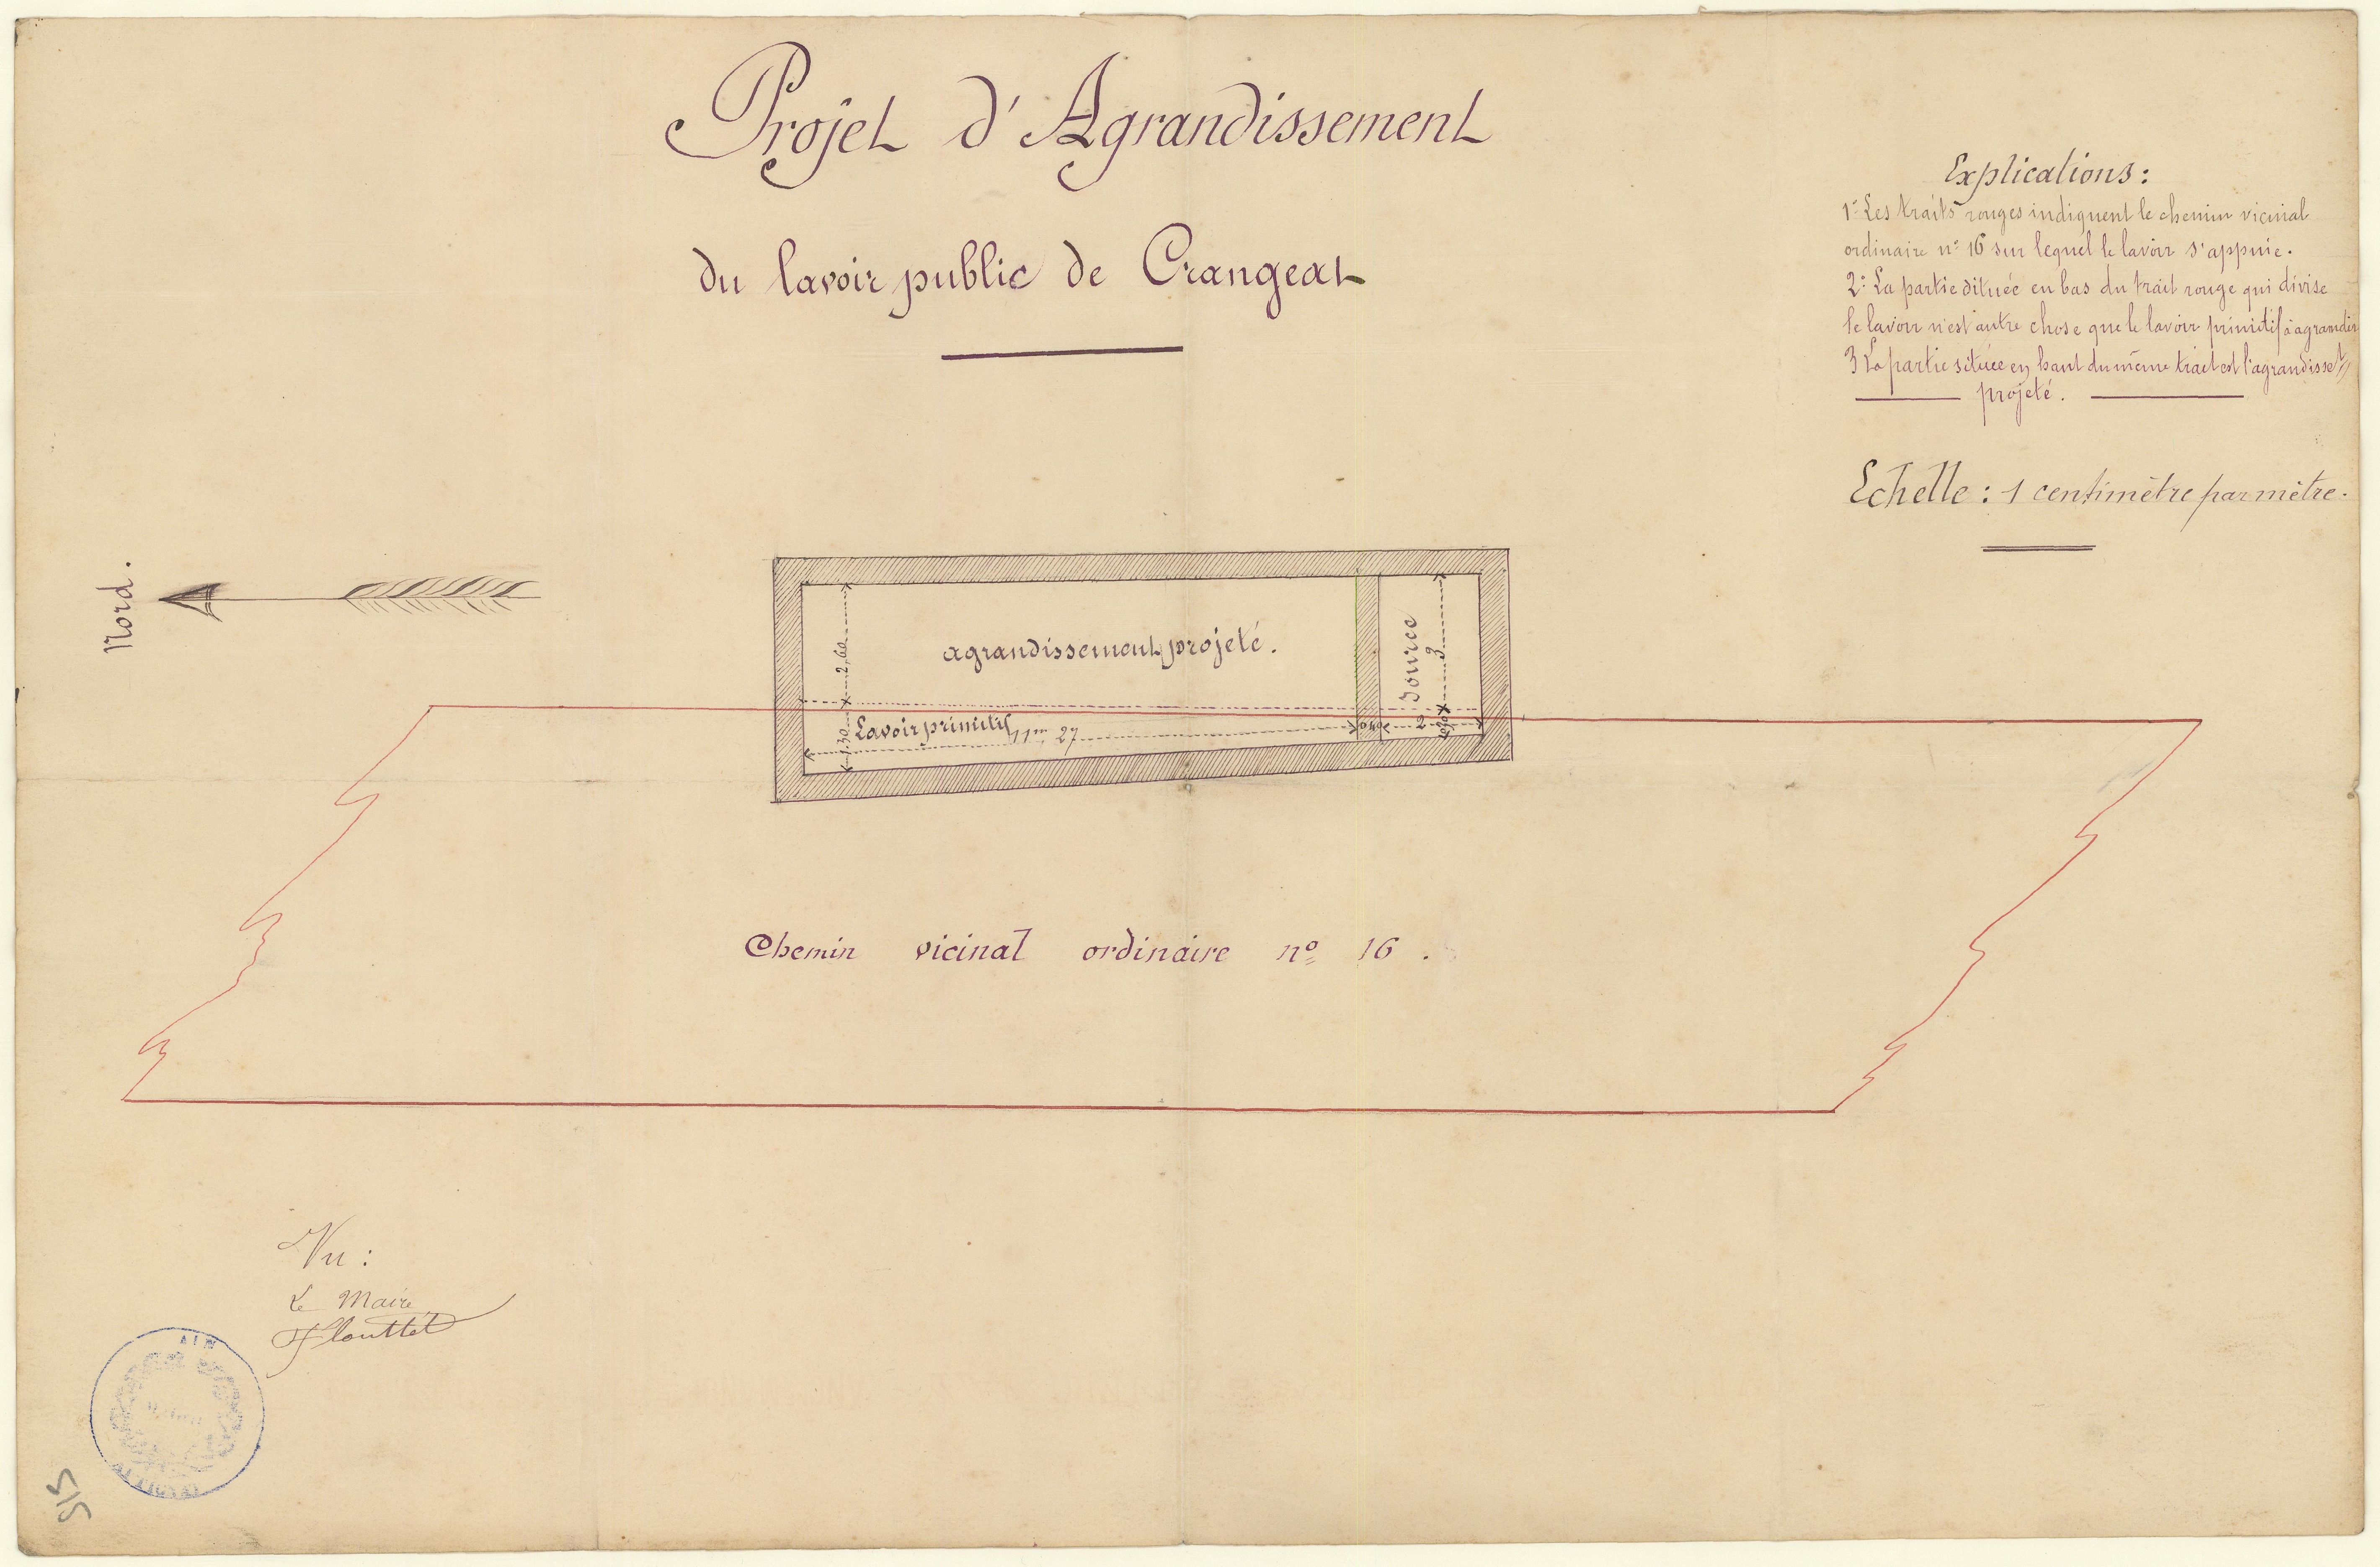 Projet d'Agrandissement
du lavoir public de Crangeat
Explications :
1º Les traits rouges indiquent le chemin vicinal
ordinaire nº 16 sur lequel le lavoir s'appuie.
2º La partie située en bas du trait rouge qui divise
le lavoir n'est autre chose que le lavoir primitif à agrandir
3 La partie située en haut du même trait est l'agrandisset
projeté.
Echelle : 1 centimètre par mètre.
Nord.
agrandissement projeté.
2,60
source
3
Lavoir primitif
1.30
11m 27
0,40
2
Chemin vicinal ordinaire nº 16 .
Vu :
Le Maire
Flouttet
AIN
5/5